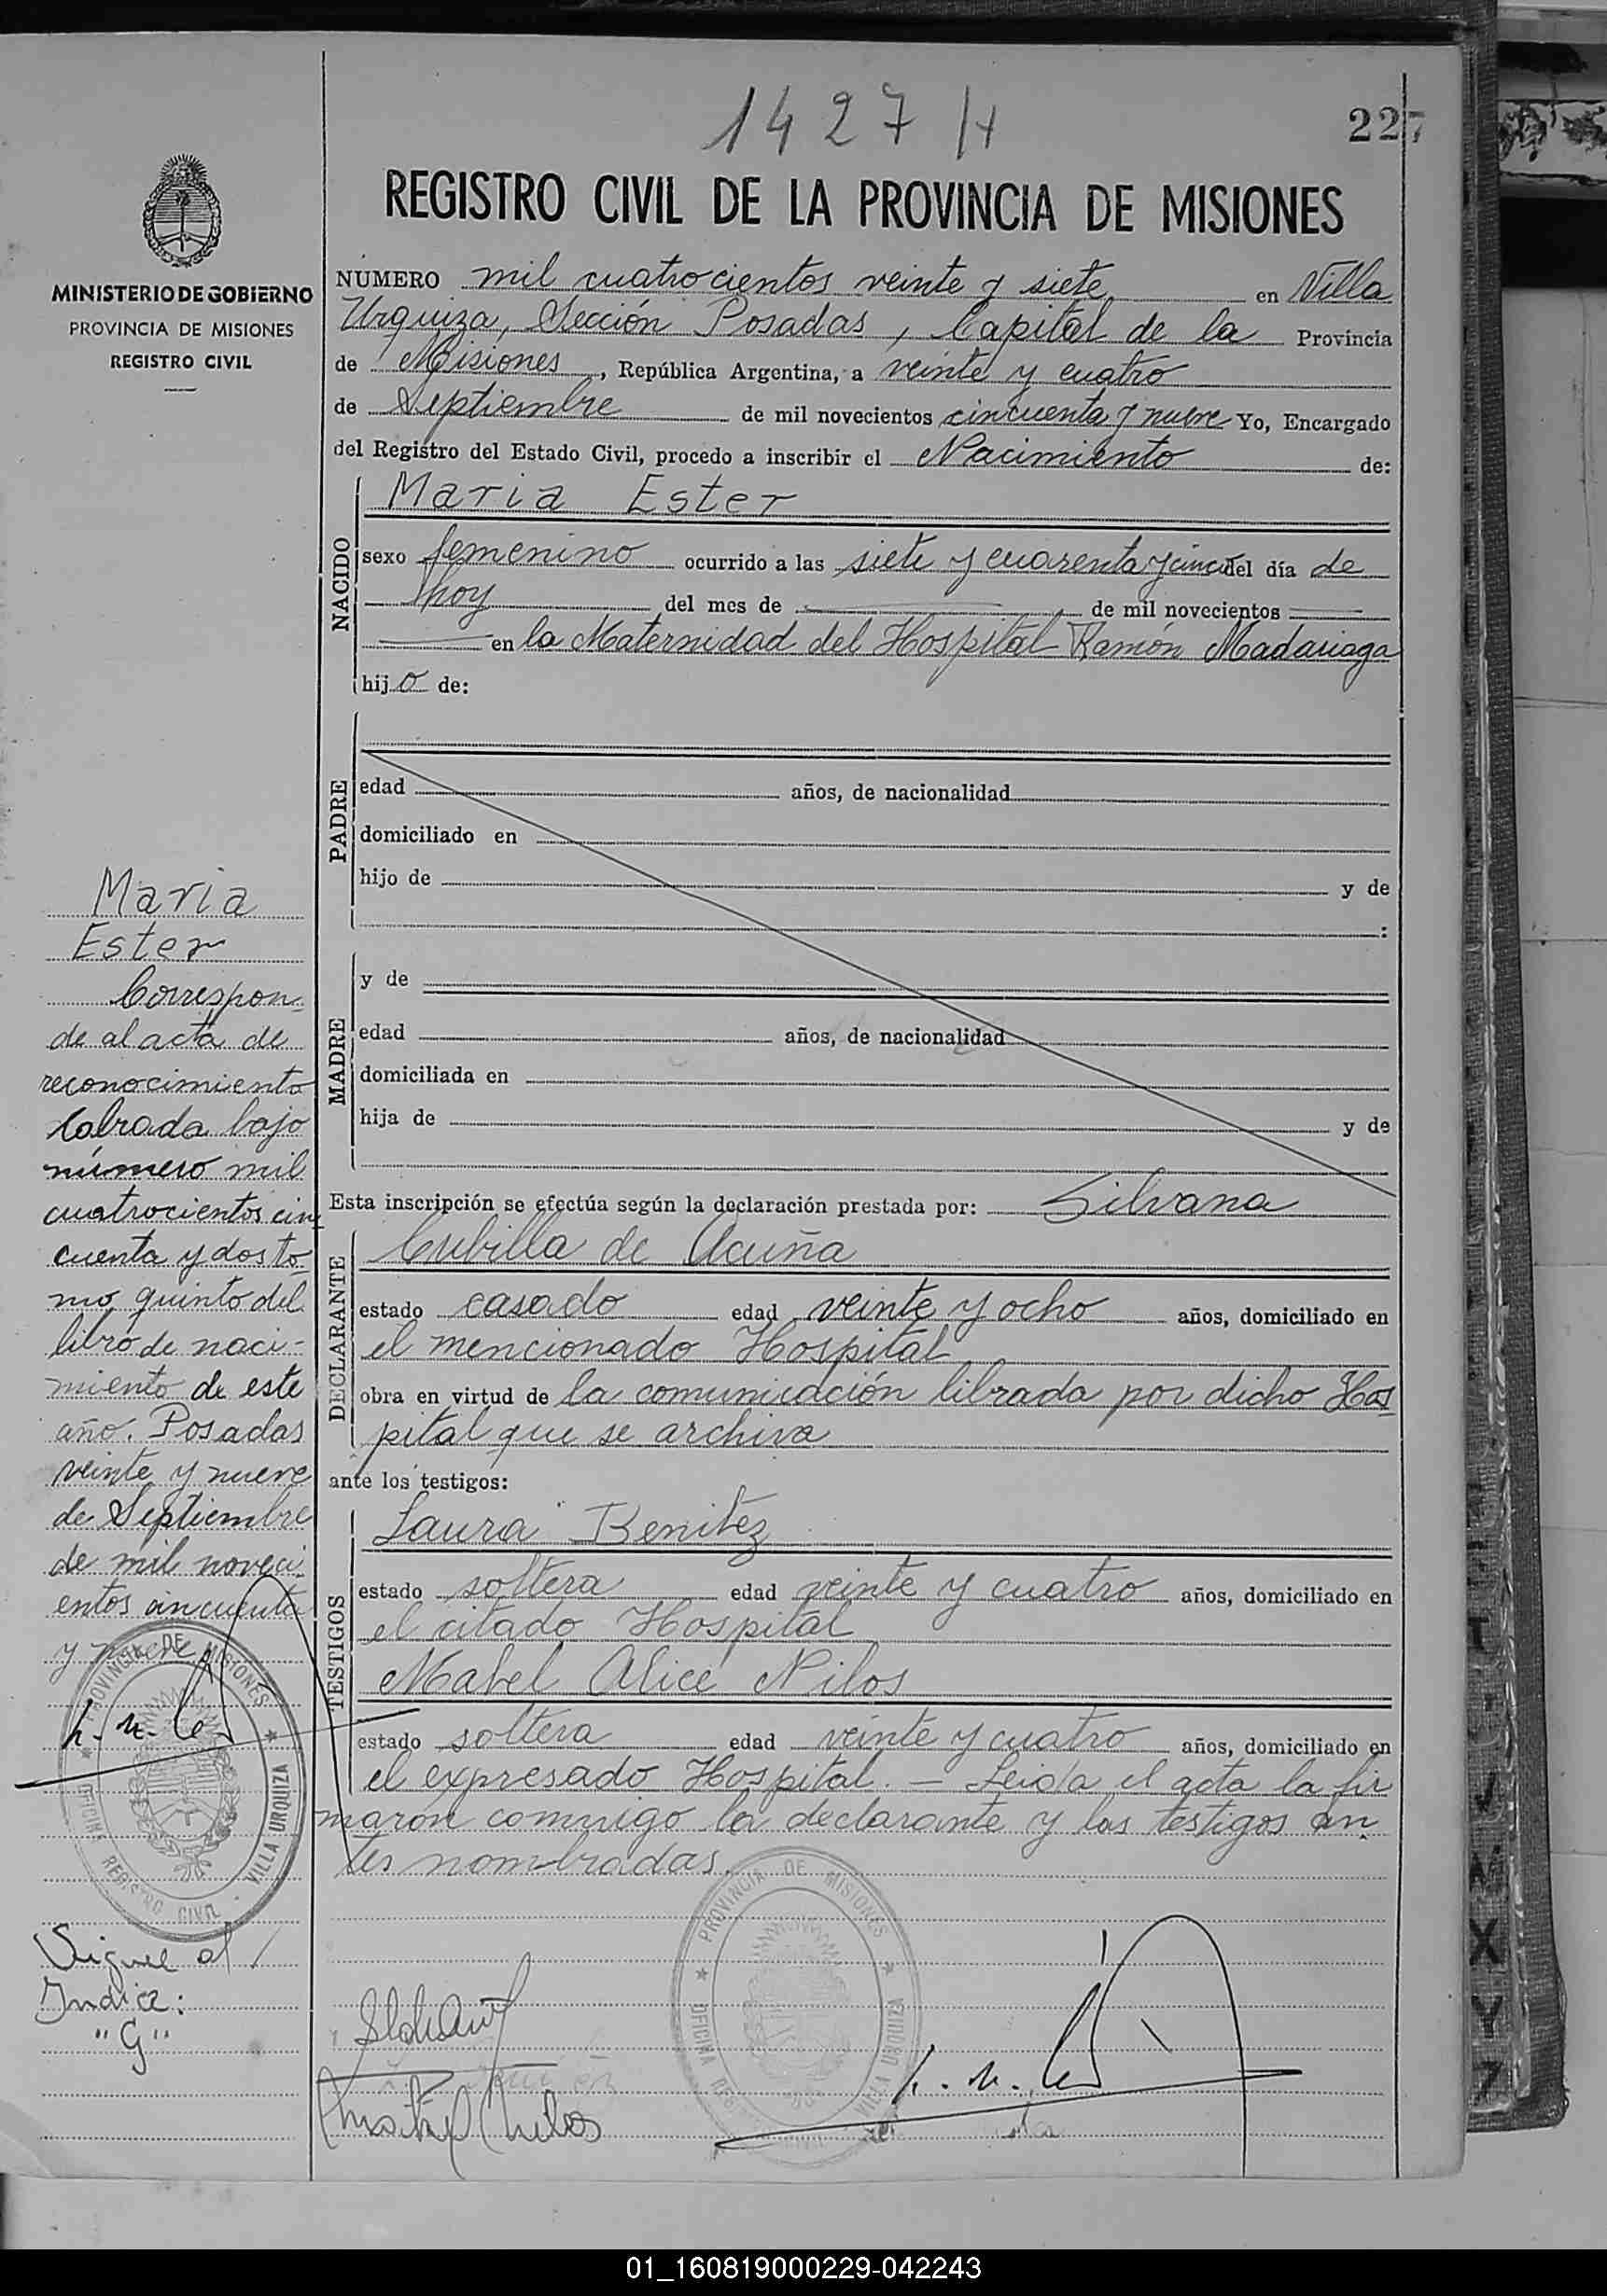 1427 H
227
REGISTRO CIVIL DE LA PROVINCIA DE MISIONES
MINISTERIO DE GOBIERNO
PROVINCIA DE MISIONES
REGISTRO CIVIL
NUMERO mil cuatrocientos veinte y siete en Villa
Urquiza, Sección Posadas, Capital de la Provincia
de Misiones, República Argentina, a veinte y cuatro
de Septiembre de mil novecientos cincuenta y nueve Yo, Encargado
del Registro del Estado Civil, procedo a inscribir el Nacimiento de:
NACIDO
Maria Ester
sexo femenino ocurrido a las siete y cuarenta y cinco del día de
hoy del mes de de mil novecientos
en la Maternidad del Hospital Ramón Madariaga
hijo de:
PADRE
edad años, de nacionalidad
domiciliado en
hijo de y de
:
MADRE
y de
edad años, de nacionalidad
domiciliada en
hija de y de
Esta inscripción se efectúa según la declaración prestada por: Silvana
DECLARANTE
Cubilla de Acuña
estado casado edad veinte y ocho años, domiciliado en
el mencionado Hospital
obra en virtud de la comunicación librada por dicho Hos
pital que se archiva
ante los testigos:
TESTIGOS
Laura Benitez
estado soltera edad veinte y cuatro años, domiciliado en
el citado Hospital
Mabel Alice Nilos
estado soltera edad veinte y cuatro años, domiciliado en
el expresado Hospital. — Leida el acta la fir
maron conmigo la declarante y las testigos an
tes nombradas.
Maria
Ester
Correspon
de al acta de
reconocimiento
labrada bajo
número mil
cuatrocientos cin
cuenta y dos to
mo quinto del
libro de naci-
miento de este
año. Posadas
veinte y nueve
de Septiembre
de mil noveci
entos cincuenta
y nueve
PROVINCIA DE MISIONES
OFICINA REGISTRO CIVIL - VILLA URQUIZA
Sigue al
Indice:
"G"
PROVINCIA DE MISIONES
OFICINA REGISTRO CIVIL VILLA URQUIZA
T
X
Y
Z
01_160819000229-042243